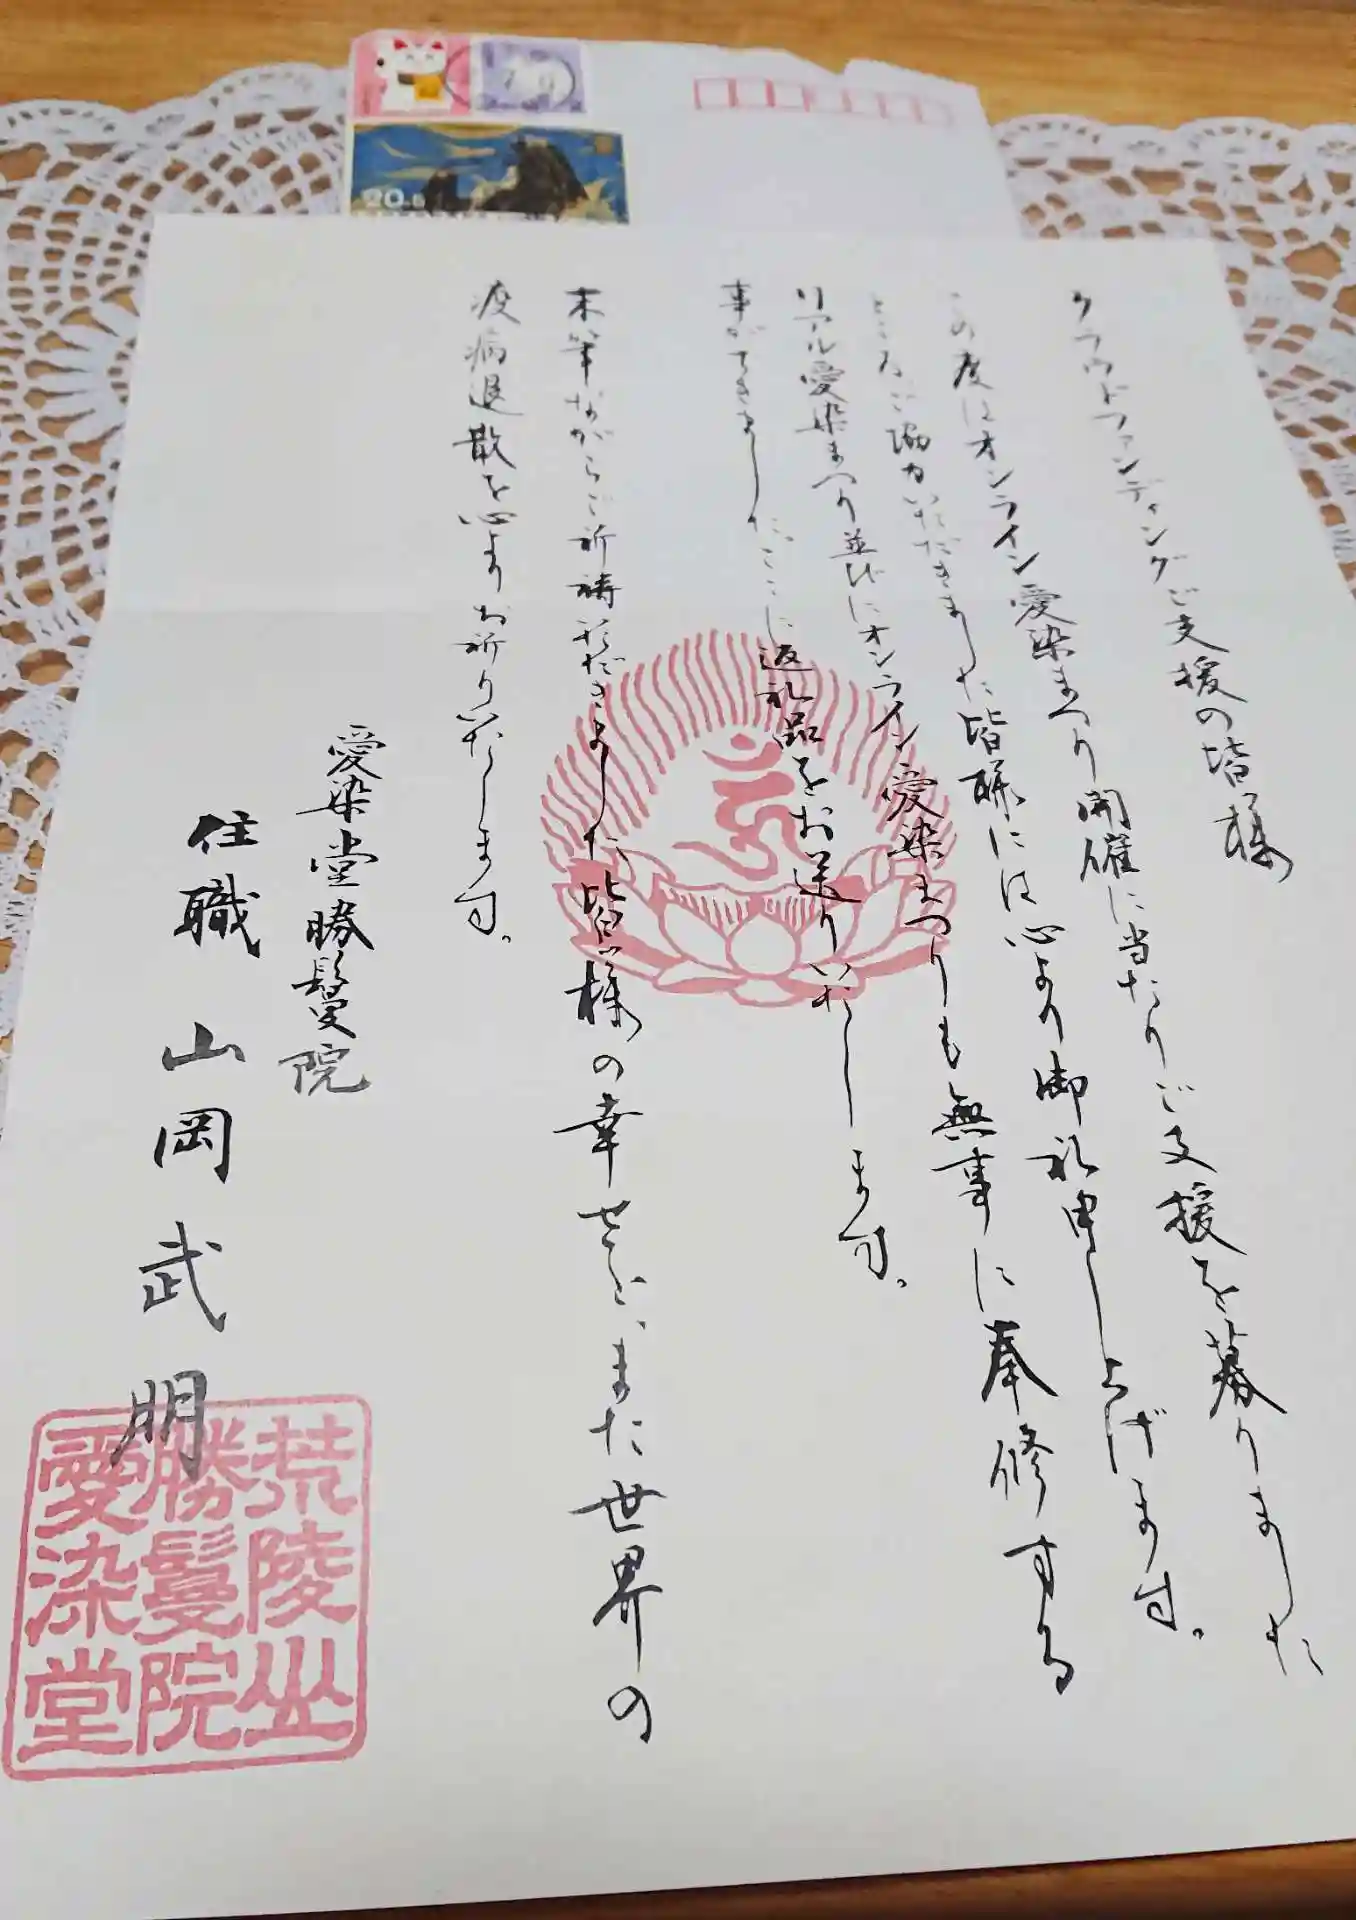 クラウドファンディングご支援の皆様
この度はオンライン愛染まつり開催に当たりご支援を募りました
ところご協力いただきました皆様には心より御礼申し上げます。
リアル愛染まつり並びにオンライン愛染まつりも無事に奉修する
事ができましたここに返礼品をお送りいたします。
末筆ながらご祈祷頂だきました皆様の幸せと、また世界の
疫病退散を心よりお祈りいたします。
愛染堂勝鬘院
住職 山岡武明
荒陵山
勝鬘院
愛染堂
20